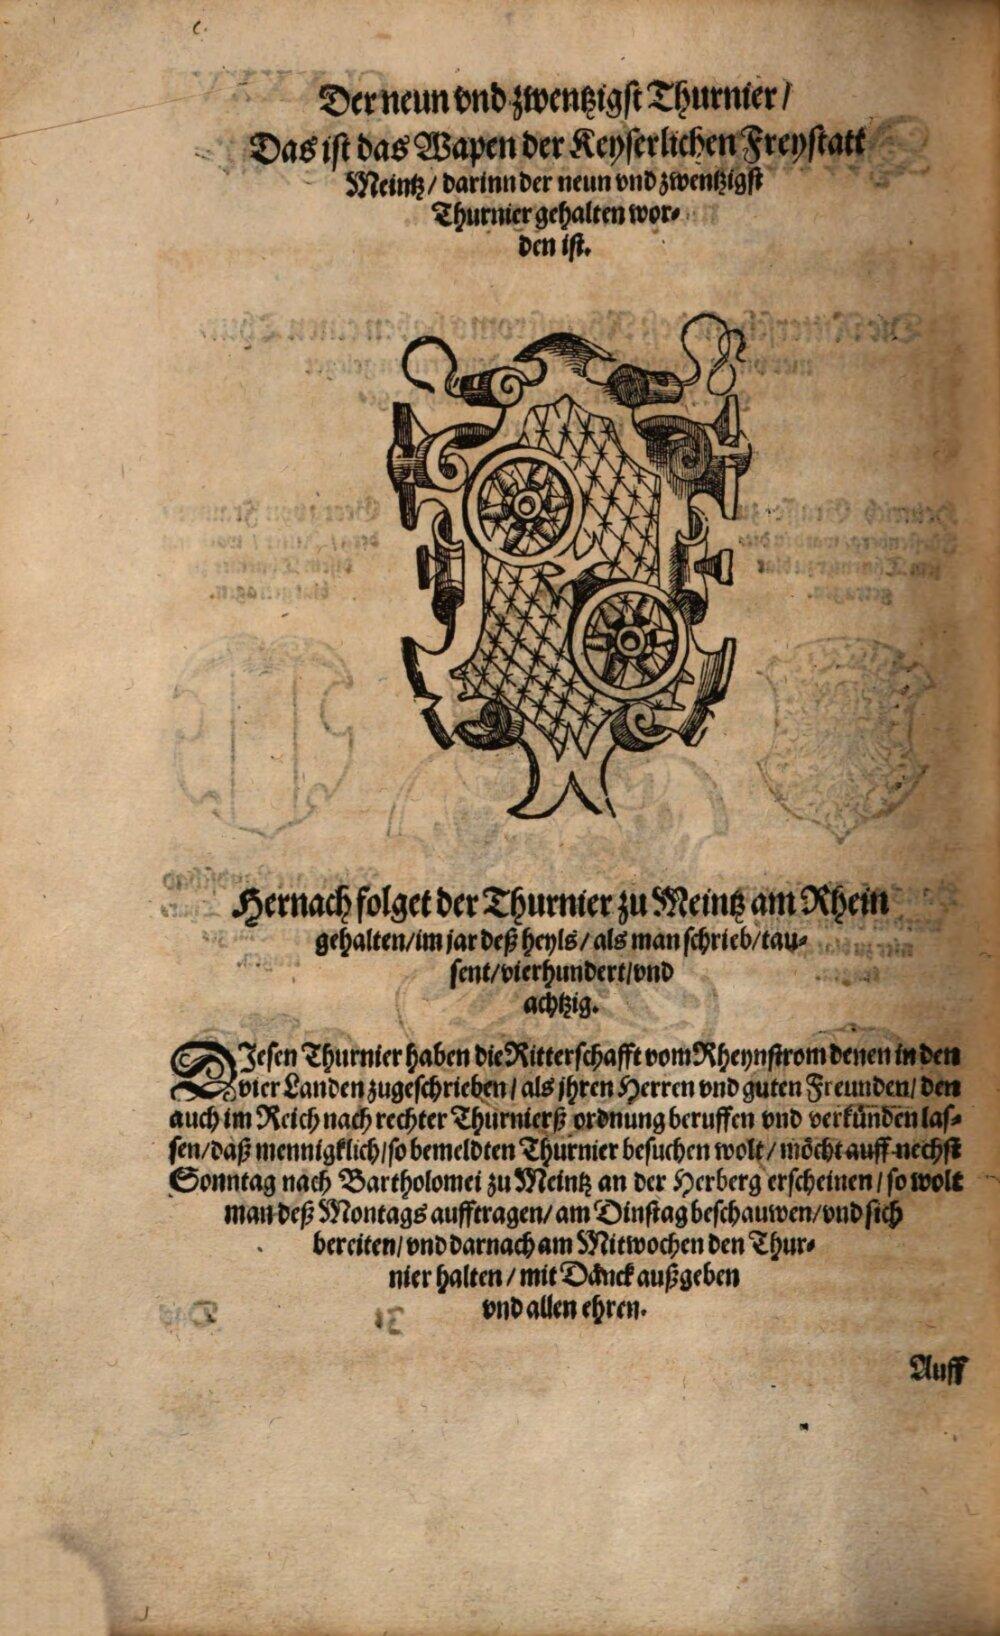 Der neun vnd zwentzigst Thurnier/
Das ist das Wapen der Keyserlichen Freystatt
Meintz/ darinn der neun vnd zwentzigst
Thurnier gehalten wor-
den ist.
Hernach folget der Thurnier zu Meintz am Rhein
gehalten/ im jar deß heyls/ als man schrieb/ tau-
sent/ vierhundert/ vnd
achtzig.
DIesen Thurnier haben die Ritterschafft vom Rheynstrom denen in den
vier Landen zugeschrieben/ als jhren Herren vnd guten Freunden/ den
auch im Reich nach rechter Thurnierß ordnung beruffen vnd verkünden las-
sen/ daß mennigklich/ so bemeldten Thurnier besuchen wolt/ möcht auff nechst
Sonntag nach Bartholomei zu Meintz an der Herberg erscheinen/ so wolt
man deß Montags aufftragen/ am Dinstag beschauwen/ vnd sich
bereiten/ vnd darnach am Mitwochen den Thur-
nier halten/ mit Danck außgeben
vnd allen ehren.
Auff